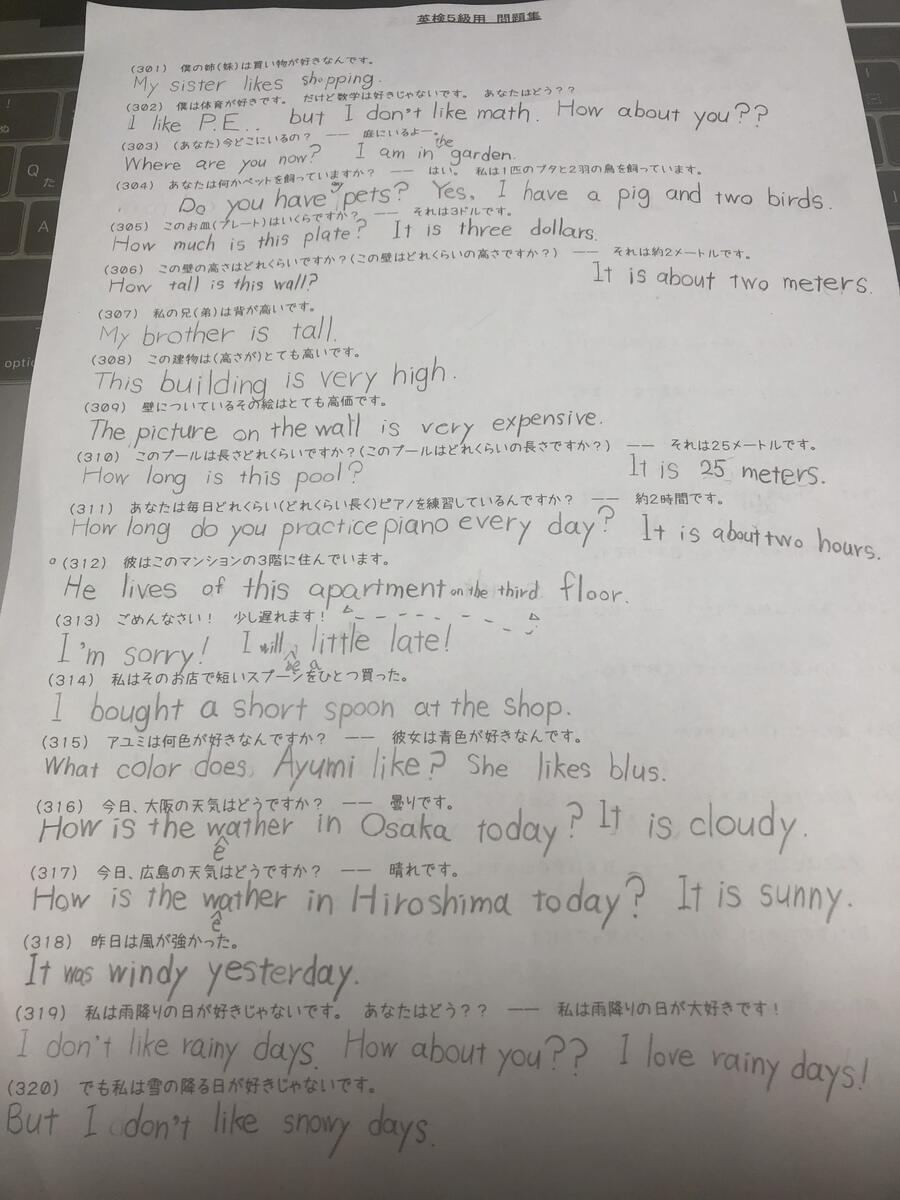 英検5級用 問題集
(301) 僕の姉(妹)は買い物が好きなんです。
My sister likes shopping.
(302) 僕は体育が好きです。 だけど数学は好きじゃないです。 あなたはどう??
I like P.E.. but I don't like math. How about you??
(303) (あなた)今どこにいるの? ―― 庭にいるよー。
Where are you now? I am in the garden.
(304) あなたは何かペットを飼っていますか? ―― はい。 私は1匹のブタと2羽の鳥を飼っています。
Do you have any pets? Yes, I have a pig and two birds.
(305) このお皿(プレート)はいくらですか? ―― それは3ドルです。
How much is this plate? It is three dollars.
(306) この壁の高さはどれくらいですか?(この壁はどれくらいの高さですか?) ―― それは約2メートルです。
How tall is this wall? It is about two meters.
(307) 私の兄(弟)は背が高いです。
My brother is tall.
(308) この建物は(高さが)とても高いです。
This building is very high.
(309) 壁についているその絵はとても高価です。
The picture on the wall is very expensive.
(310) このプールは長さどれくらいですか?(このプールはどれくらいの長さですか?) ―― それは25メートルです。
How long is this pool? It is 25 meters.
(311) あなたは毎日どれくらい(どれくらい長く)ピアノを練習しているんですか? ―― 約2時間です。
How long do you practice piano every day? It is about two hours.
(312) 彼はこのマンションの3階に住んでいます。
He lives of this apartment on the third floor.
(313) ごめんなさい! 少し遅れます!
I'm sorry! I will be a little late!
(314) 私はそのお店で短いスプーンをひとつ買った。
I bought a short spoon at the shop.
(315) アユミは何色が好きなんですか? ―― 彼女は青色が好きなんです。
What color does Ayumi like? She likes blus.
(316) 今日、大阪の天気はどうですか? ―― 曇りです。
How is the weather in Osaka today? It is cloudy.
(317) 今日、広島の天気はどうですか? ―― 晴れです。
How is the weather in Hiroshima today? It is sunny.
(318) 昨日は風が強かった。
It was windy yesterday.
(319) 私は雨降りの日が好きじゃないです。 あなたはどう?? ―― 私は雨降りの日が大好きです!
I don't like rainy days. How about you?? I love rainy days!
(320) でも私は雪の降る日が好きじゃないです。
But I don't like snowy days.